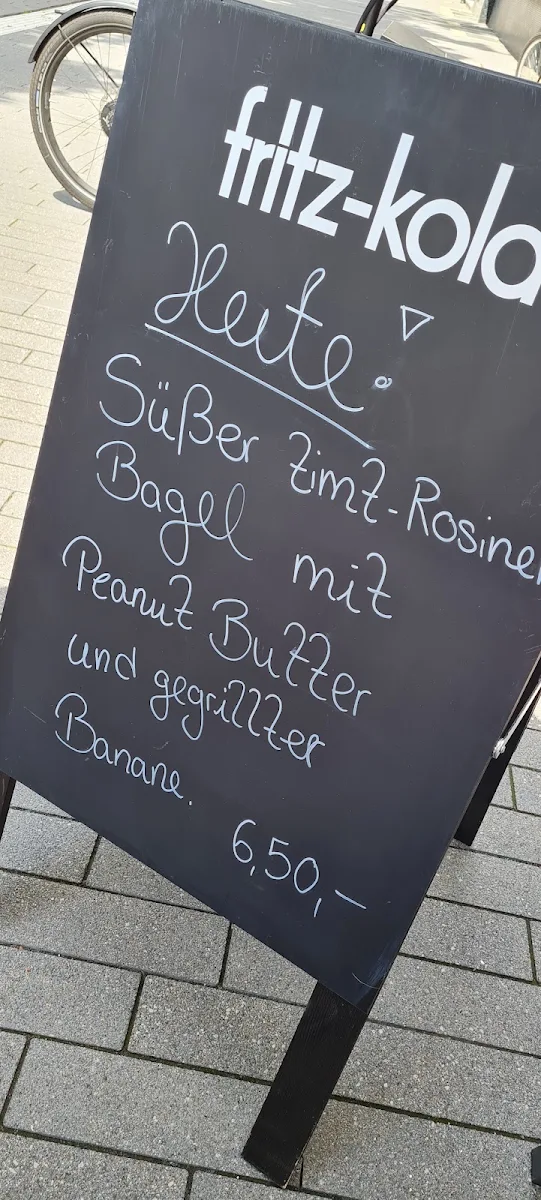 fritz-kola
Heute!
Süßer Zimt-Rosinen
Bagel mit
Peanut Butter
und gegrillter
Banane.
6,50,-